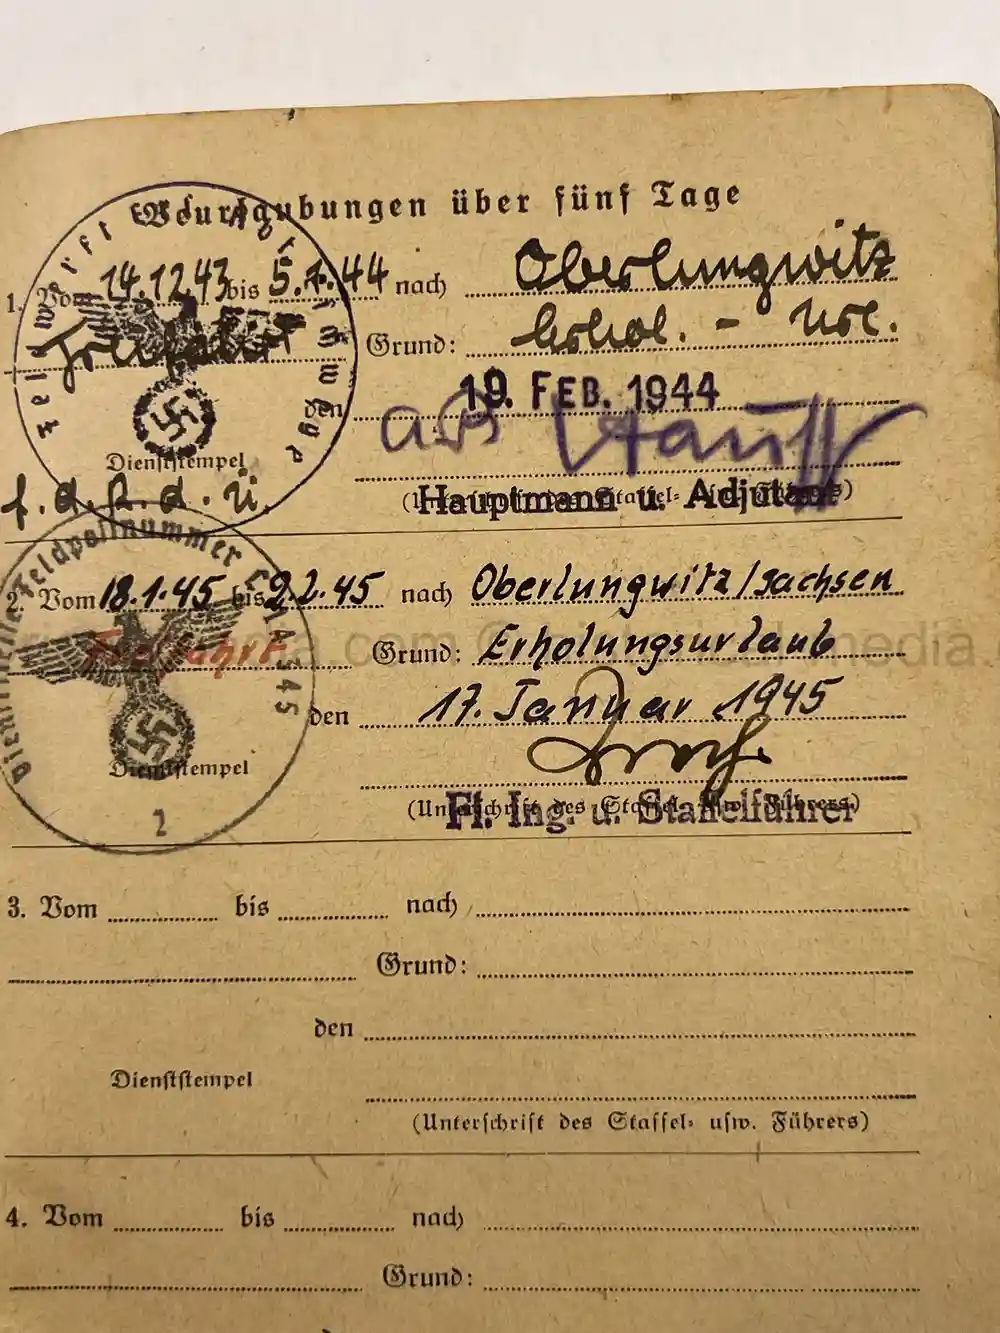 Beurlaubungen über fünf Tage
1. Vom 14.12.43 bis 5.1.44 nach Oberlungwitz
Grund: Erhol. - Url.
den 19. FEB. 1944
Dienststempel
f. d. R. d. Ü.
(Unterschrift des Staffel- usw. Führers)
Hauptmann u. Adjutant
Dienststelle Feldpostnummer L 14545
2
2. Vom 18.1.45 bis 9.2.45 nach Oberlungwitz/Sachsen
Grund: Erholungsurlaub
den 17. Januar 1945
Dienststempel
(Unterschrift des Staffel- usw. Führers)
Fl. Ing. u. Staffelführer
3. Vom bis nach
Grund:
den
Dienststempel
(Unterschrift des Staffel- usw. Führers)
4. Vom bis nach
Grund: